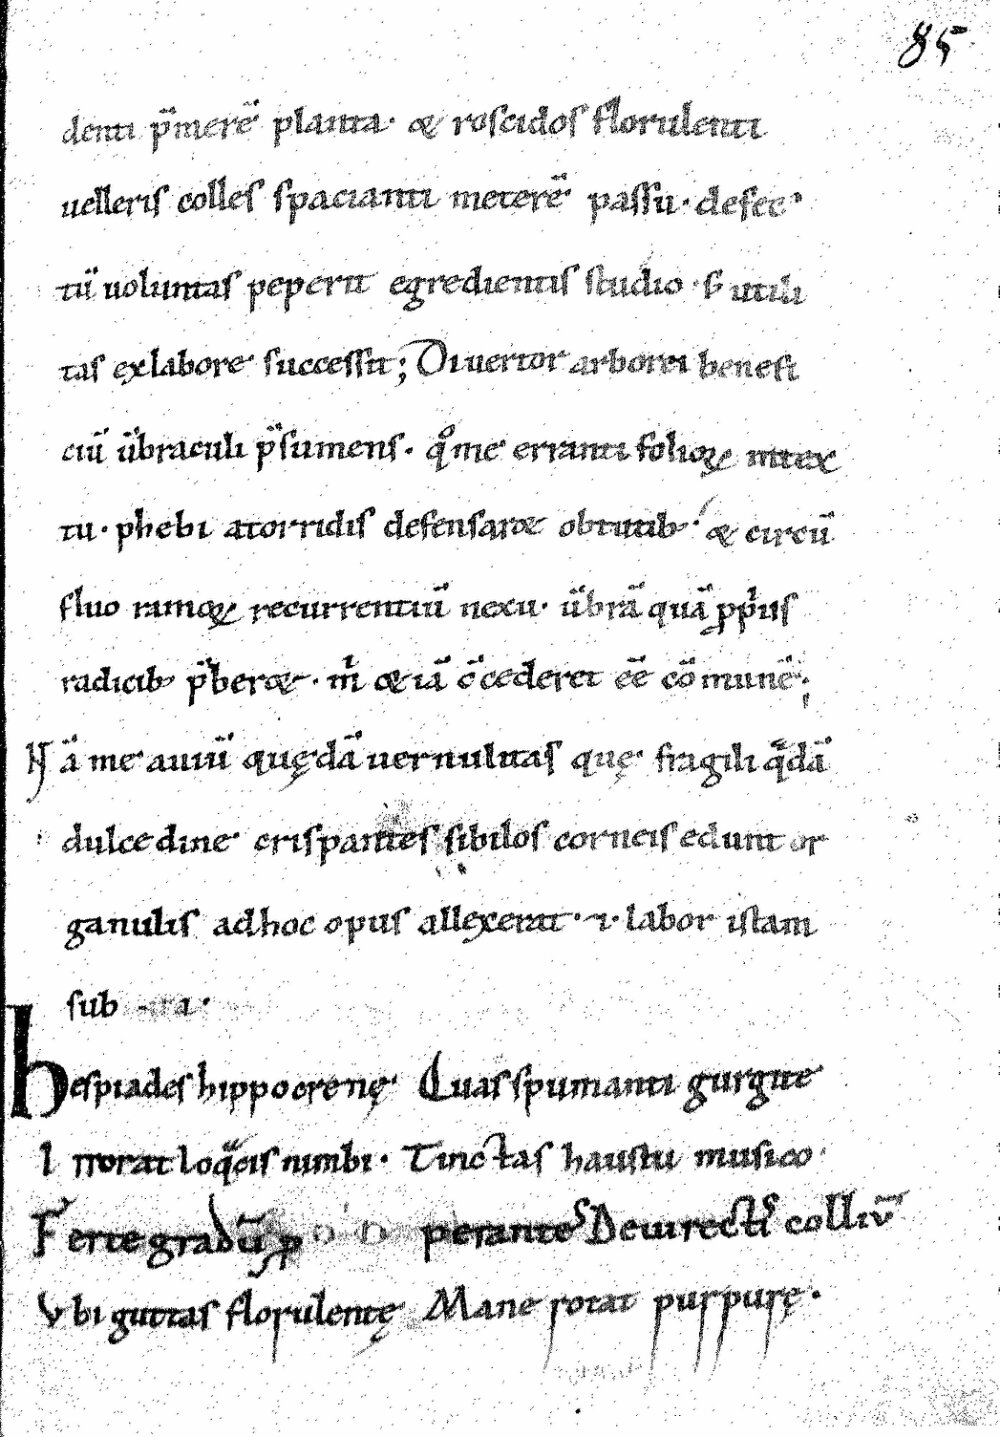 85
denti p̄merē planta· & roscidos florulenti
uelleris colles spacianti meterē passu· defec
tū uoluntas peperit egredientis studio· s; utili
tas exlabore successit; Diuertor arborei benefi
ciū ūbraculi p̄sumens· qͦme erranti folioꝝ intex
tu· phebi atorridis defensar& obtutib; & circū
fluo ramoꝝ recurrentiū nexu· ūbrā quā ꝓpiis
radicib; p̄ber&· m & iā c̄cederet eē cōmunē;
Nā me auiū quędā uernulitas quę fragili qᵃdā
dulcedine crispantes sibilos corneis edunt or
ganulis adhoc opus allexerat· ·i· labor istam
sub
hespiades hippocrenę Quas spumanti gurgite
Irrorat loqᵃcis nimbi· Tinctas haustu musico
Ferte gradū ꝑ perantes Deuirectis colliū
Vbi guttas florulentę Mane rotat purpurę·